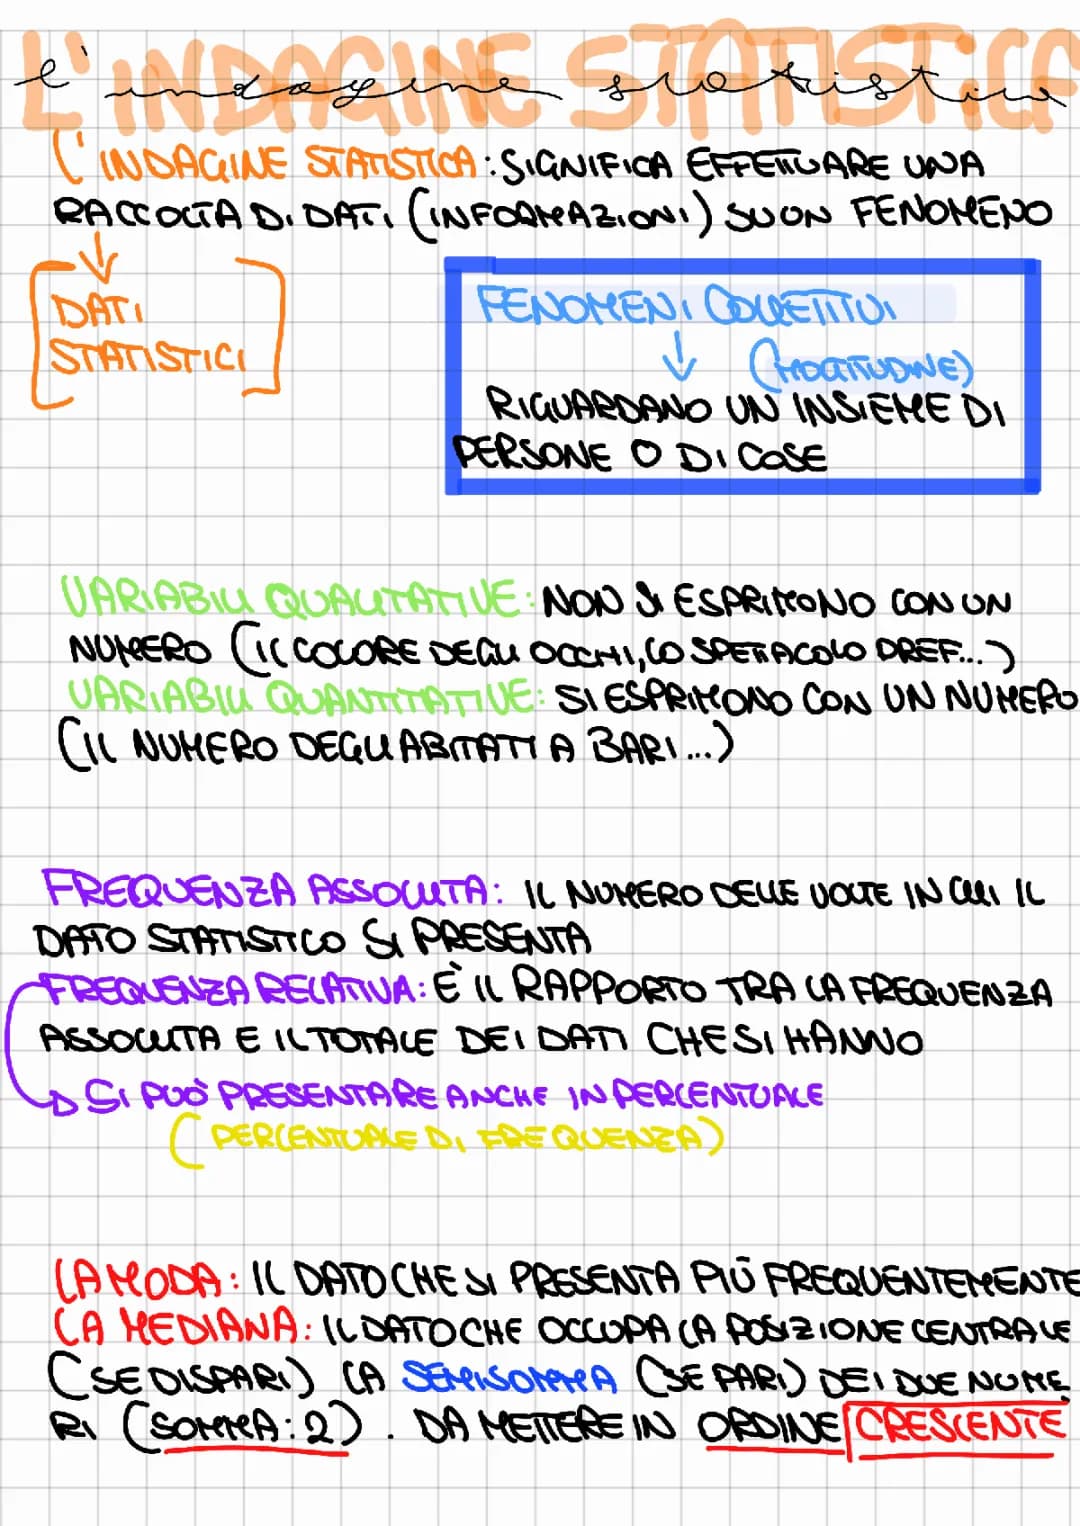 L'INDAGINE STATISTICA
l'indagine statistica
L'INDAGINE STATISTICA: SIGNIFICA EFFETTUARE UNA
RACCOLTA DI DATI (INFORMAZIONI) SU UN FENOMENO
DATI
STATISTICI
FENOMENI COLLETTIVI
(MOLTITUDINE)
RIGUARDANO UN INSIEME DI
PERSONE O DI COSE
VARIABILI QUALITATIVE: NON SI ESPRIMONO CON UN
NUMERO (IL COLORE DEGLI OCCHI, LO SPETTACOLO PREF...)
VARIABILI QUANTITATIVE: SI ESPRIMONO CON UN NUMERO
(IL NUMERO DEGLI ABITATI A BARI...)
FREQUENZA ASSOLUTA: IL NUMERO DELLE VOLTE IN CUI IL
DATO STATISTICO SI PRESENTA
FREQUENZA RELATIVA: È IL RAPPORTO TRA LA FREQUENZA
ASSOLUTA E IL TOTALE DEI DATI CHE SI HANNO
SI PUÒ PRESENTARE ANCHE IN PERCENTUALE
(PERCENTUALE DI FREQUENZA)
LA MODA: IL DATO CHE SI PRESENTA PIÙ FREQUENTEMENTE
LA MEDIANA: IL DATO CHE OCCUPA LA POSIZIONE CENTRALE
(SE DISPARI) LA SEMISOMMA (SE PARI) DEI DUE NUME
RI (SOMMA:2). DA METTERE IN ORDINE CRESCENTE